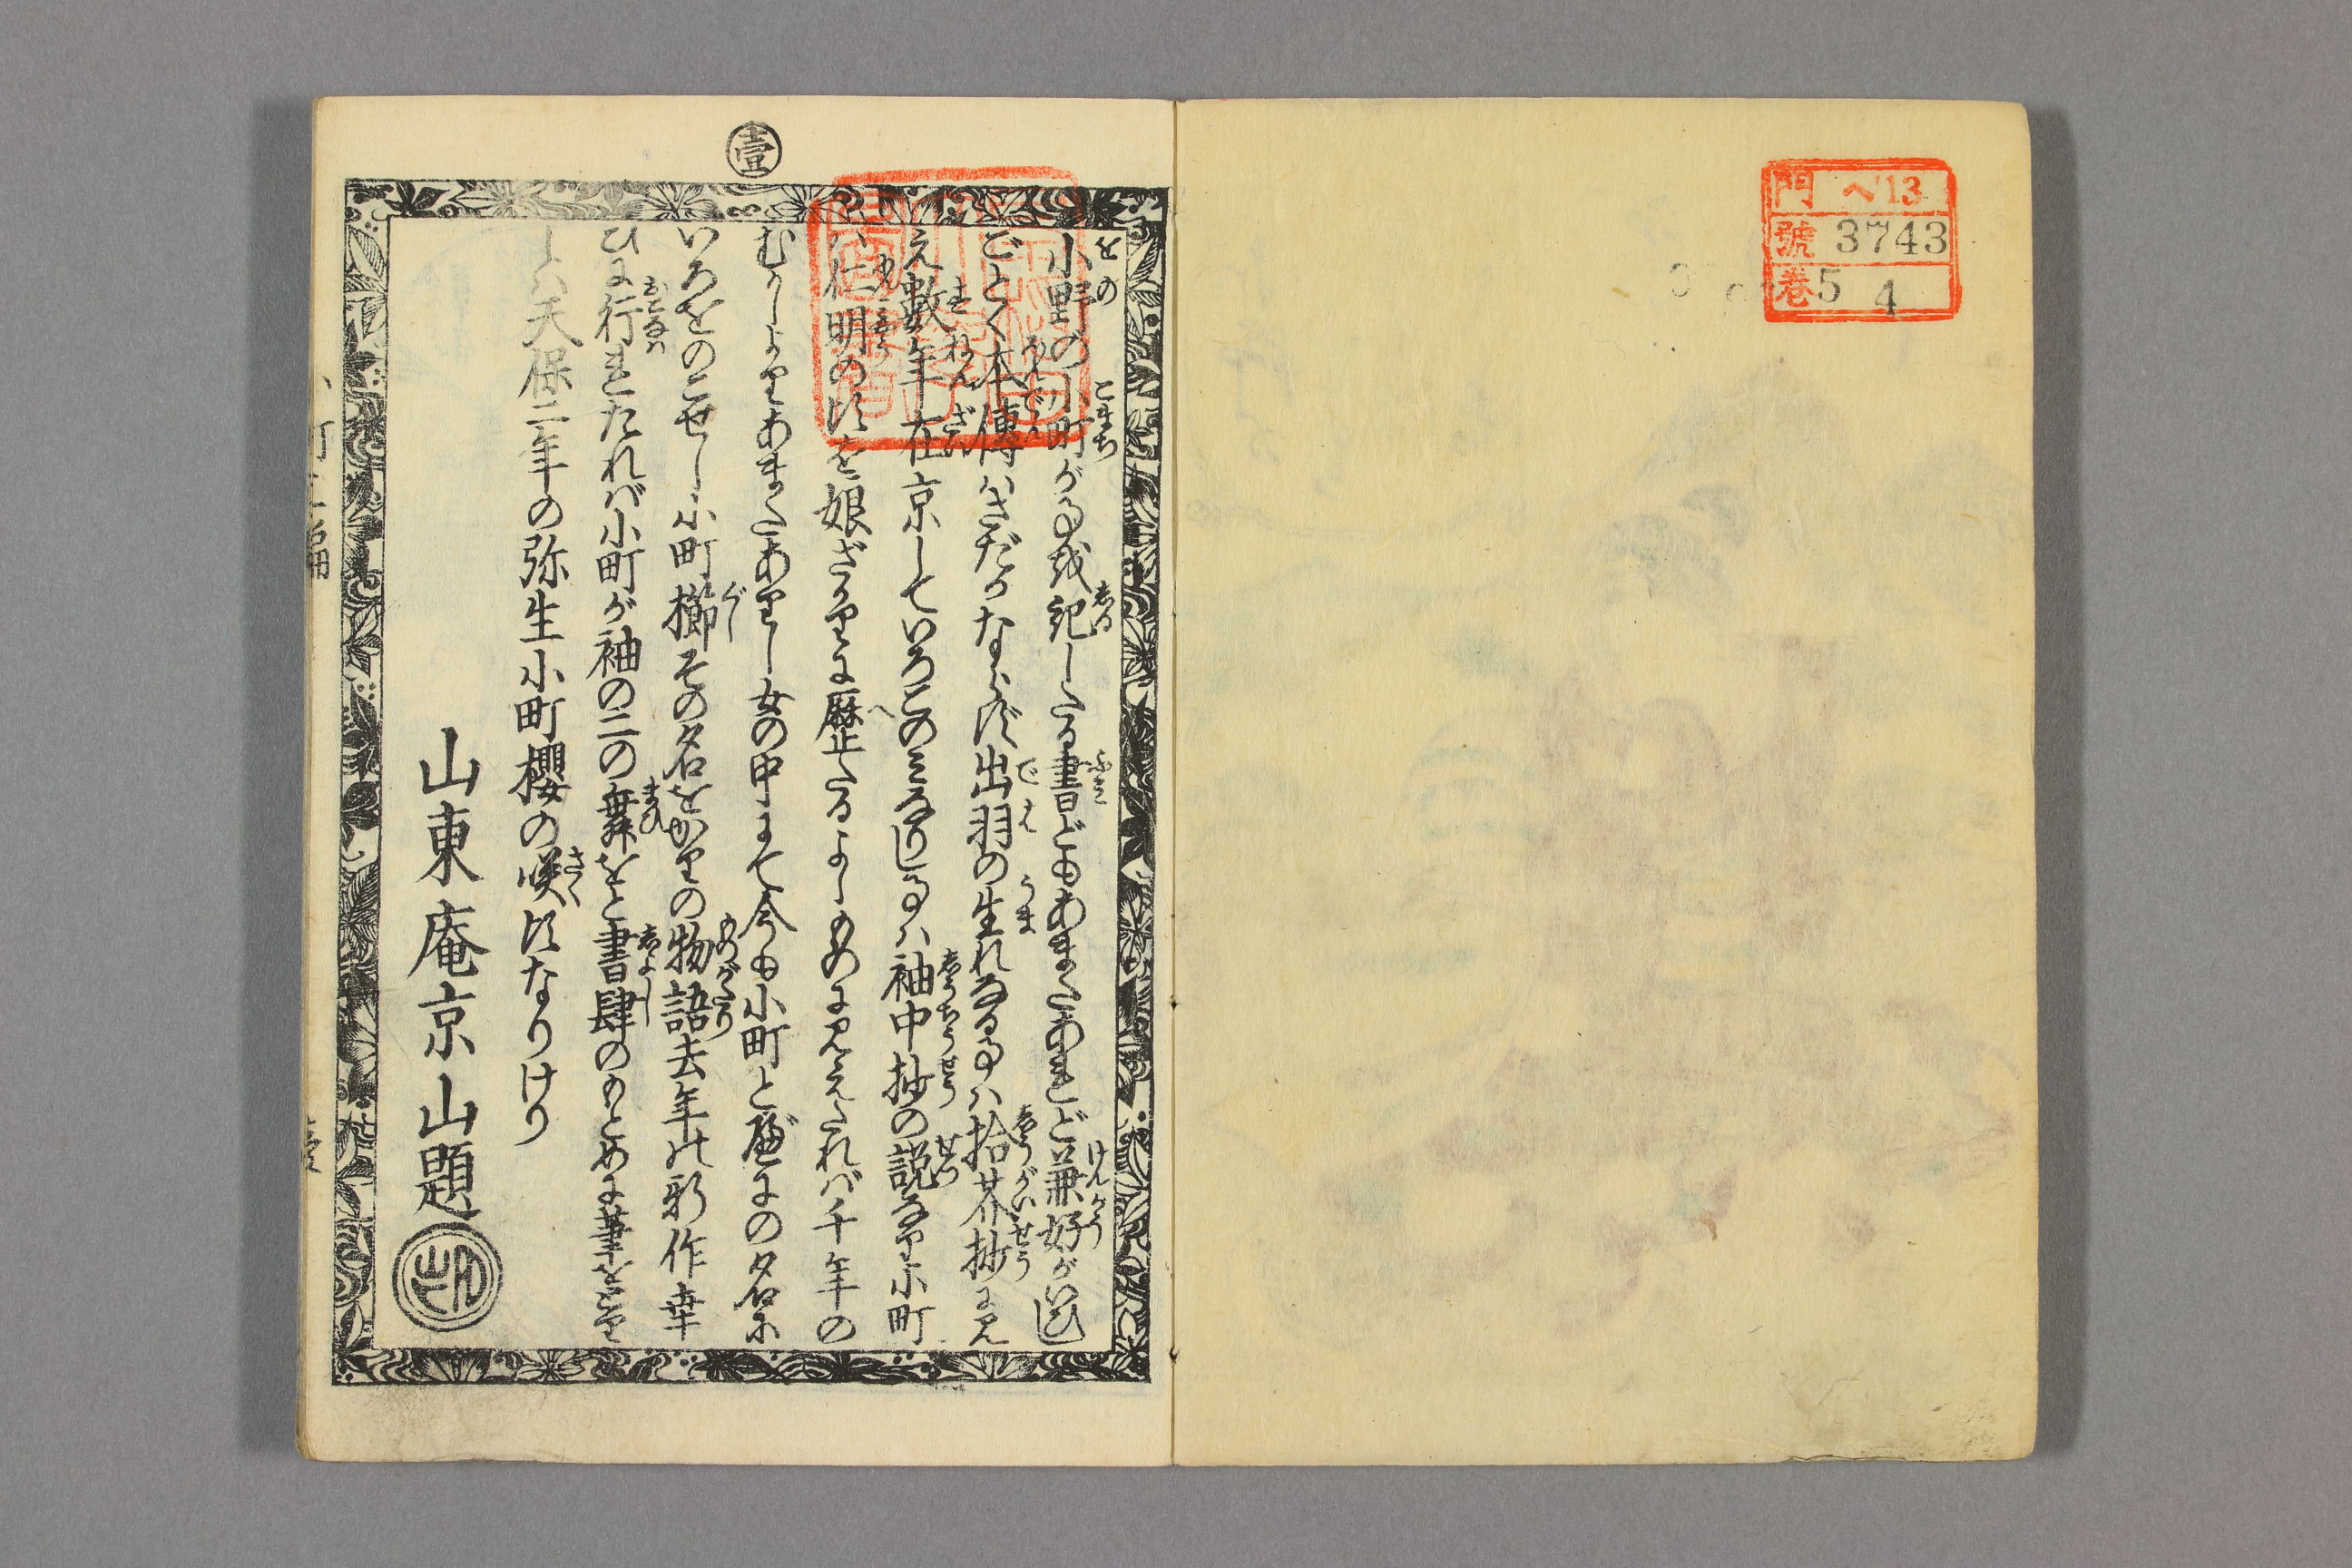 門 ヘ13
號 3743
巻 5 4
壹
小野の小町が事を記したる書どもあまたあれど兼好がいひし
ごとく本傳はさだかならず出羽の生れなる事ハ拾芥抄に見
え數年在京していろこのみなりし事ハ袖中抄の説なり小町
ハ仁明の頃を娘ざかりに歴たるよしものに見えたれバ千年の
むかしよりあまたありし女の中にて今も小町と
いろをのこせし小町櫛その名をかりの物語去年の新作幸
ひに行れたれバ小町が袖の二の舞をと書肆のもとめに筆をとり
しハ天保二年の弥生小町櫻の咲頃なりけり
山東庵京山題